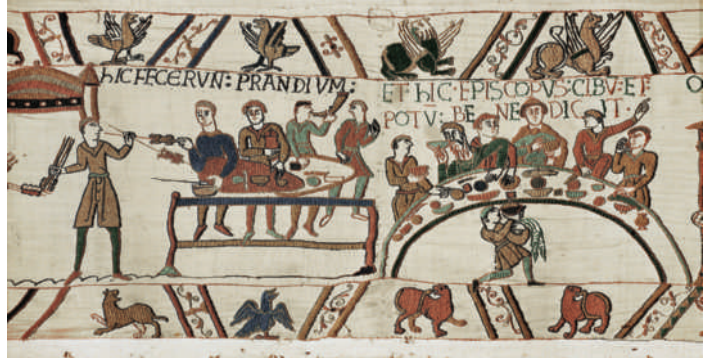 hIC FECERVN: PRANDIVM:
ET hIC·EPISCOPVS:CIBV:ET·
POTV̄: BE NE DIC IT·